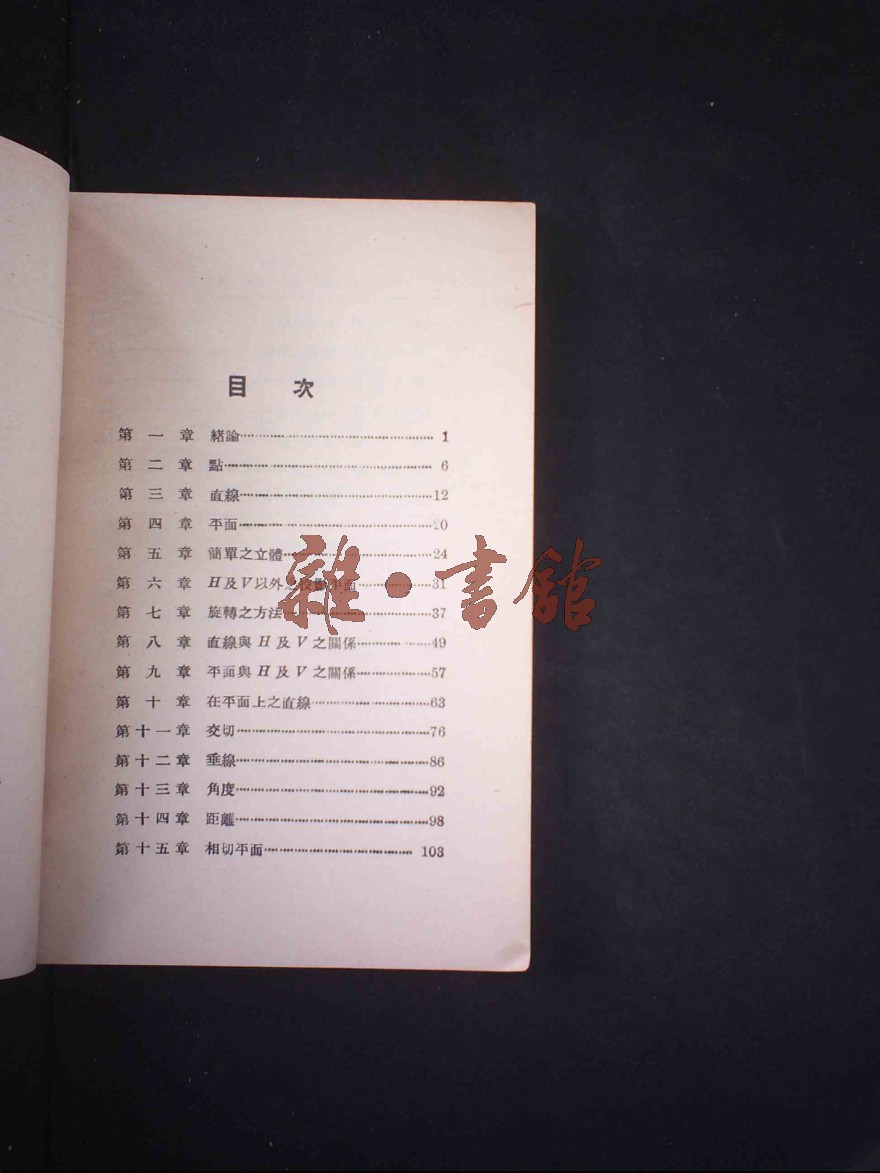 目 次
第一章 緒論 1
第二章 點 6
第三章 直線 12
第四章 平面 20
第五章 簡單之立體 24
第六章 H及V以外之投影平面 31
第七章 旋轉之方法 37
第八章 直線與H及V之關係 49
第九章 平面與H及V之關係 57
第十章 在平面上之直線 63
第十一章 交切 76
第十二章 垂線 86
第十三章 角度 92
第十四章 距離 98
第十五章 相切平面 103
雜·書館